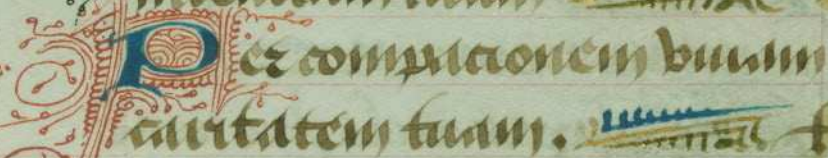 Per compacionem viuam
caritatem tuam.